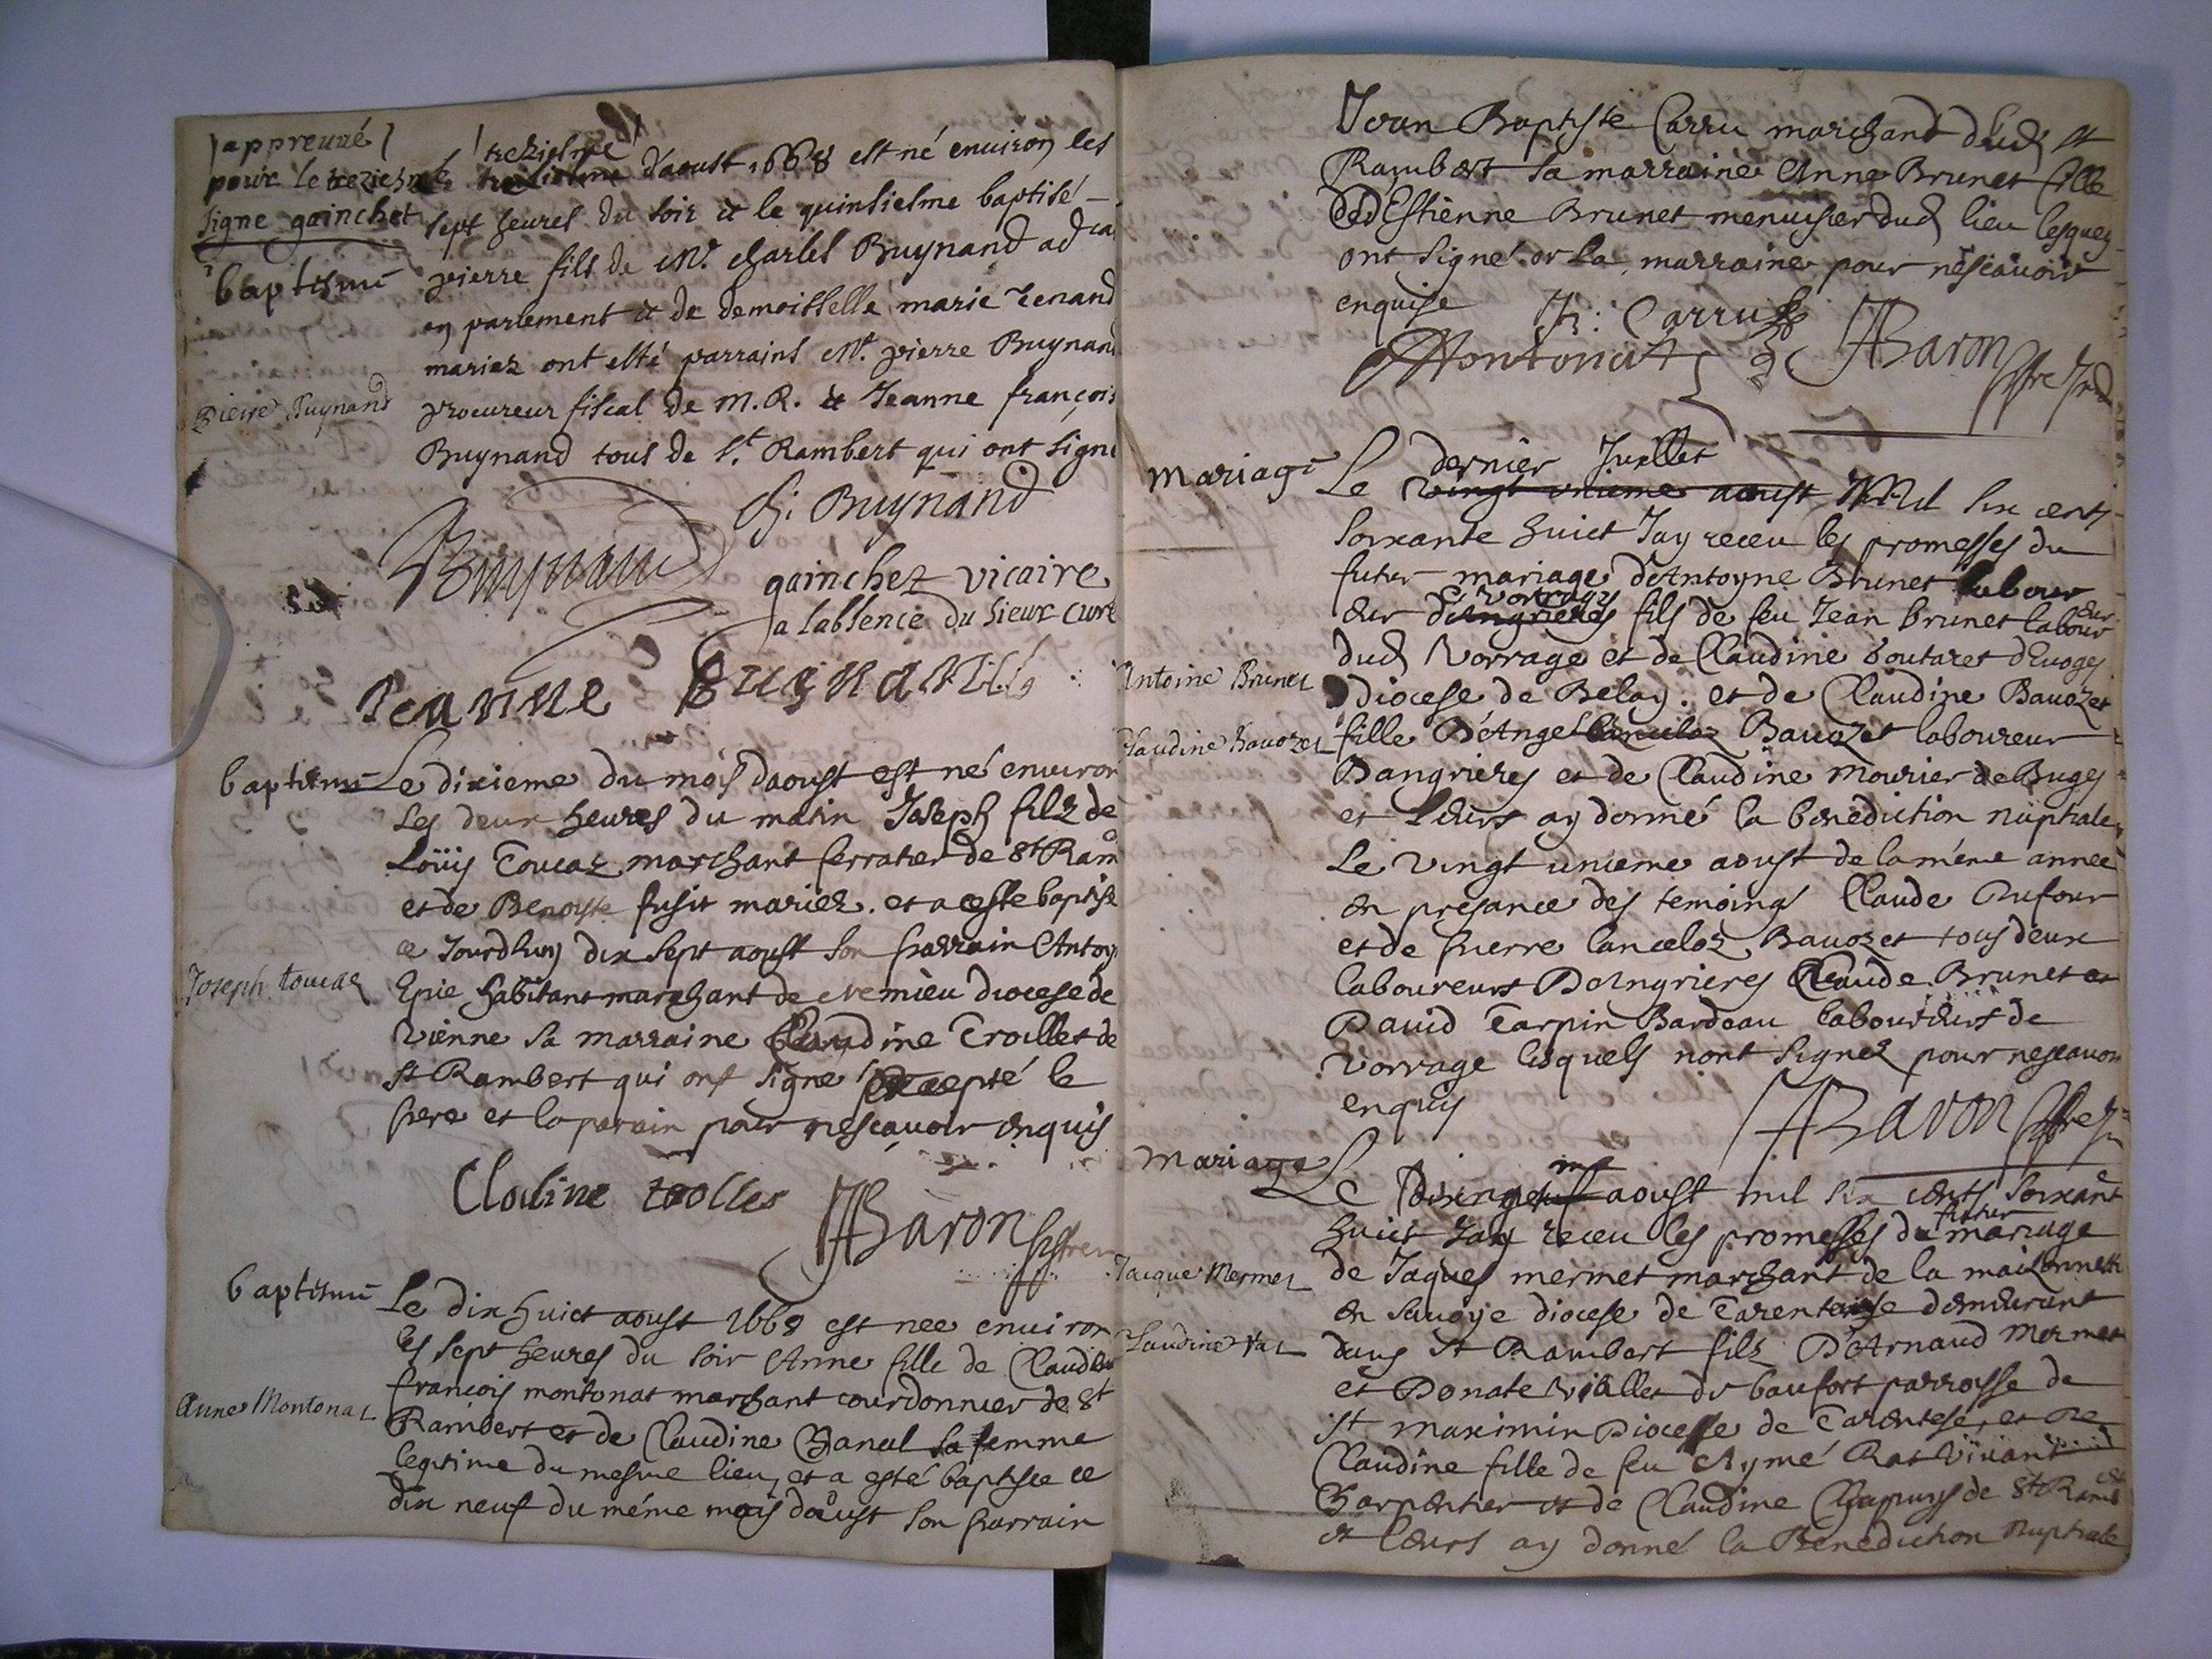 appreuué
pour le treziesme
signe gainchet
baptisme
Pierre Buynand
treziesme
le d'aoust 1668 est né enuiron les
sept heures du soir et le quinsiesme baptisé
pierre fils de Mr. charles Buynand aduca
en parlement et de demoisselle marie tenand
mariez ont esté parrains Mr. pierre Buynand
procureur fiscal de M.R. et Jeanne françois
Buynand tous de St. Rambert qui ont signé
Buynand
Ch: Buynand
gainchet vicaire
a lablence du sieur curé
Jeanne Buynand
baptisme
Joseph toucaz
Le dixieme du mois daoust est né enuiron
Les deux heures du matin Joseph filz de
Loüis Toucaz marchant ferratier de St Ram
et de Benoiste fusit mariez. et a esté baptisé
ce Jourdhuy dix sept aoust son parrain Antoy
Epie habitant marchant de cremieu diocese de
vienne sa marraine Claudine Troillet de
St Rambert qui ont signé excepté le
pere et la parain pour nescauoir enquis
Clodine trolles
JBaron pstre
baptisme
Anne Montonat
Le dix huict aoust 1668 est nee enuiron
les sept heures du soir Anne fille de Claude
françois montonat marchant courdonnier de St
Rambert et de Claudine Chanal sa femme
legitime du mesme lieu, et a esté baptisee ce
dix neuf du méme mois daoust son parrain
Jean Baptiste Carru marchand dud St
Rambert sa marraine Anne Brunet fille
d'Estienne Brunet menusier dud lieu lesquez
ont signé or la marraine pour nescauoir
enquise
J: Carru
Montonat
JBaron pstre
mariage
Antoine Brunet
Claudine Bauozet
dernier Juillet
Le vingt unieme aoust Mil six cents
soixante huict Jay receu les promesses du
futur mariage d'Antoyne Brunet labour
vorrages
eur d'Angrieres fils de feu Jean brunet laboureur
dud Vorrage et de Claudine boutaret d'Euoges
diocese de Belay. et de Claudine Bauozet
fille D'Ange Bauozet laboureur
Dangrieres et de Claudine mourier de Buges
et Leurs ay donné la benediction nuptiale
Le vingt unieme aoust de la méme annee
en presance des temoings Claude Dufour
et de pierre lanceloz Bauozet tous deux
laboureurs D'Angrieres Claude Brunet et
Dauid Tarpin Bardeau laboureurs de
vorrage lesquels nont signez pour nescauoir
enquis
JBaron pstre
mariage
Jacque Mermet
Claudine Rat
Le aoust mil six cents soixante
huict Jay receu les promesses du futur mariage
de Jaques mermet marchant de la maizonnette
en sauoye diocese de Tarentaise demeurant
dans St Rambert filz D'Arnaud Mermet
et Donate Viallet de baufort parroisse de
St maximin Diocesse de Tarentese, et de
Claudine fille de feu Aymé Rat viuant
Charpentier et de Claudine Chapuys de St Ramb
et leurs ay donné la Benediction Nuptiale